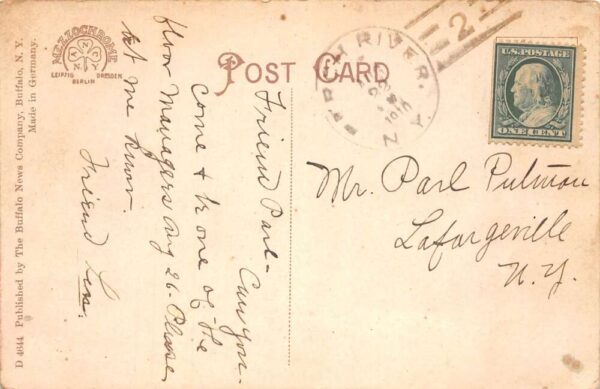 D 4644 Published by The Buffalo News Company, Buffalo, N. Y.
Made in Germany.
METZOCHROME
A N C
N.Y.
LEIPZIG DRESDEN
BERLIN
POST CARD
RIVER
1910
2
U.S. POSTAGE
ONE CENT
Friend Parl-
Can you
come & be one of the
floor managers Aug 26. Please
let me know.
Friend
Mr. Parl Putman
Lafargeville
N.Y.